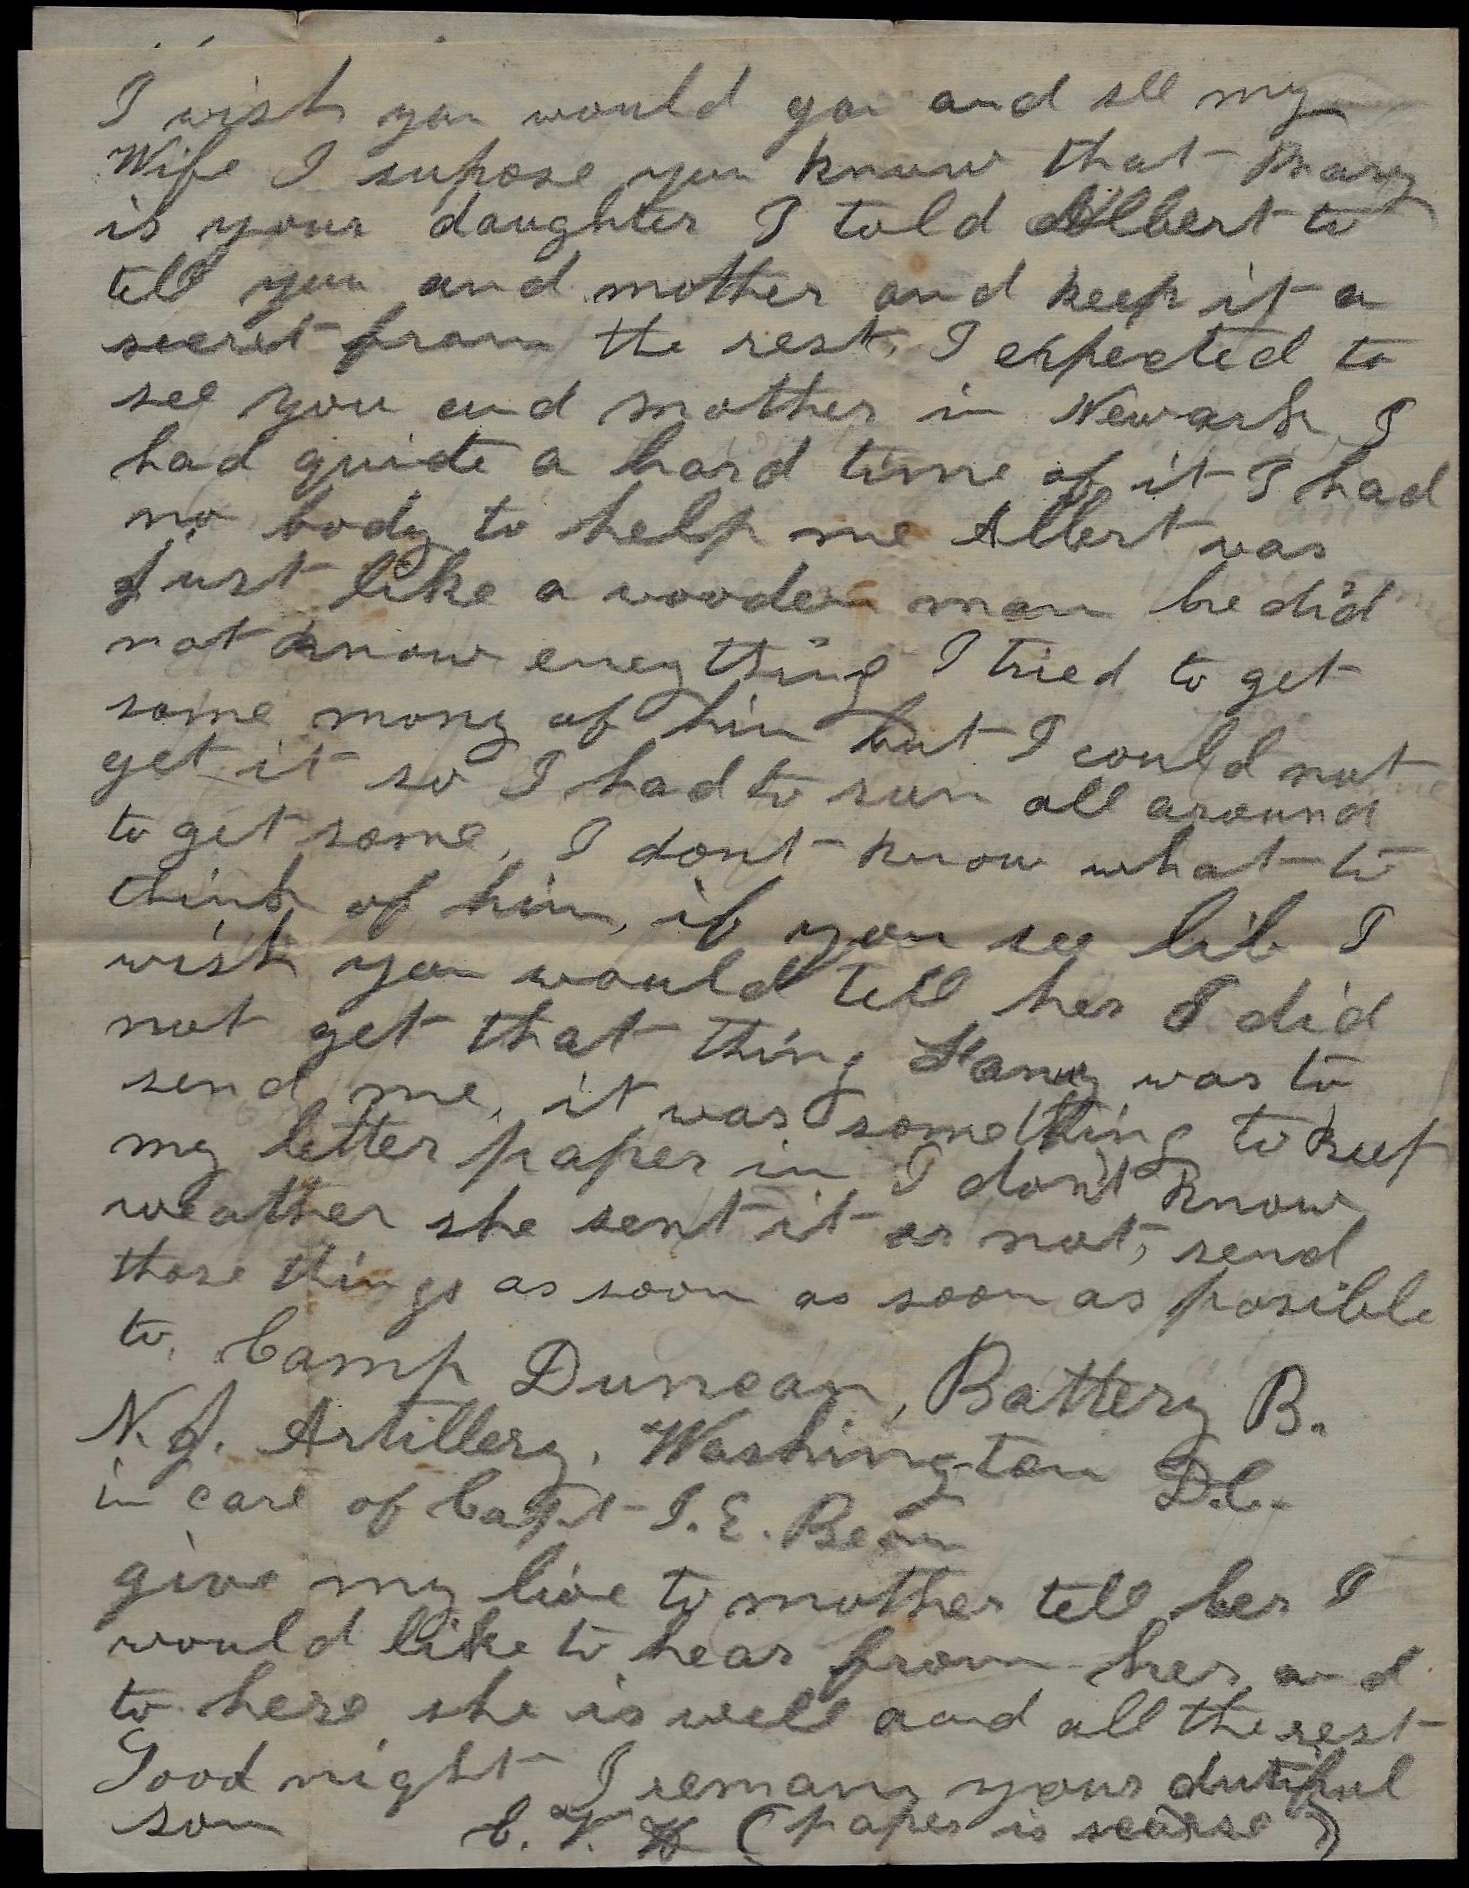 I wish you would gou and see my
Wife I supose you know that Mary
is your daughter I told Albert to
tell you and mother and keep it a
secret from the rest, I expected to
see you and mother in Newark, I
had quite a hard time of it I had
no body to help me Albert was
Just like a wooden man he did
not know eneything I tried to get
some mony of him but I could not
get it so I had to run all around
to get some, I dont know what to
think of him, if you see lib I
wish you would tell her I did
not get that thing was to
send me, it was something to put
my letter paper in I don't know
weather she sent it or not, send
those things as soon as soon as posible
to, Camp Duncan, Battery B.
N.J. Artillery, Washington D.C.
in care of Capt J.E. Beam
give my love to mother tell her I
would like to hear from her and
to here she is well aand all the rest
Good night I remany your dutiful
son C. V. H (paper is scarse)